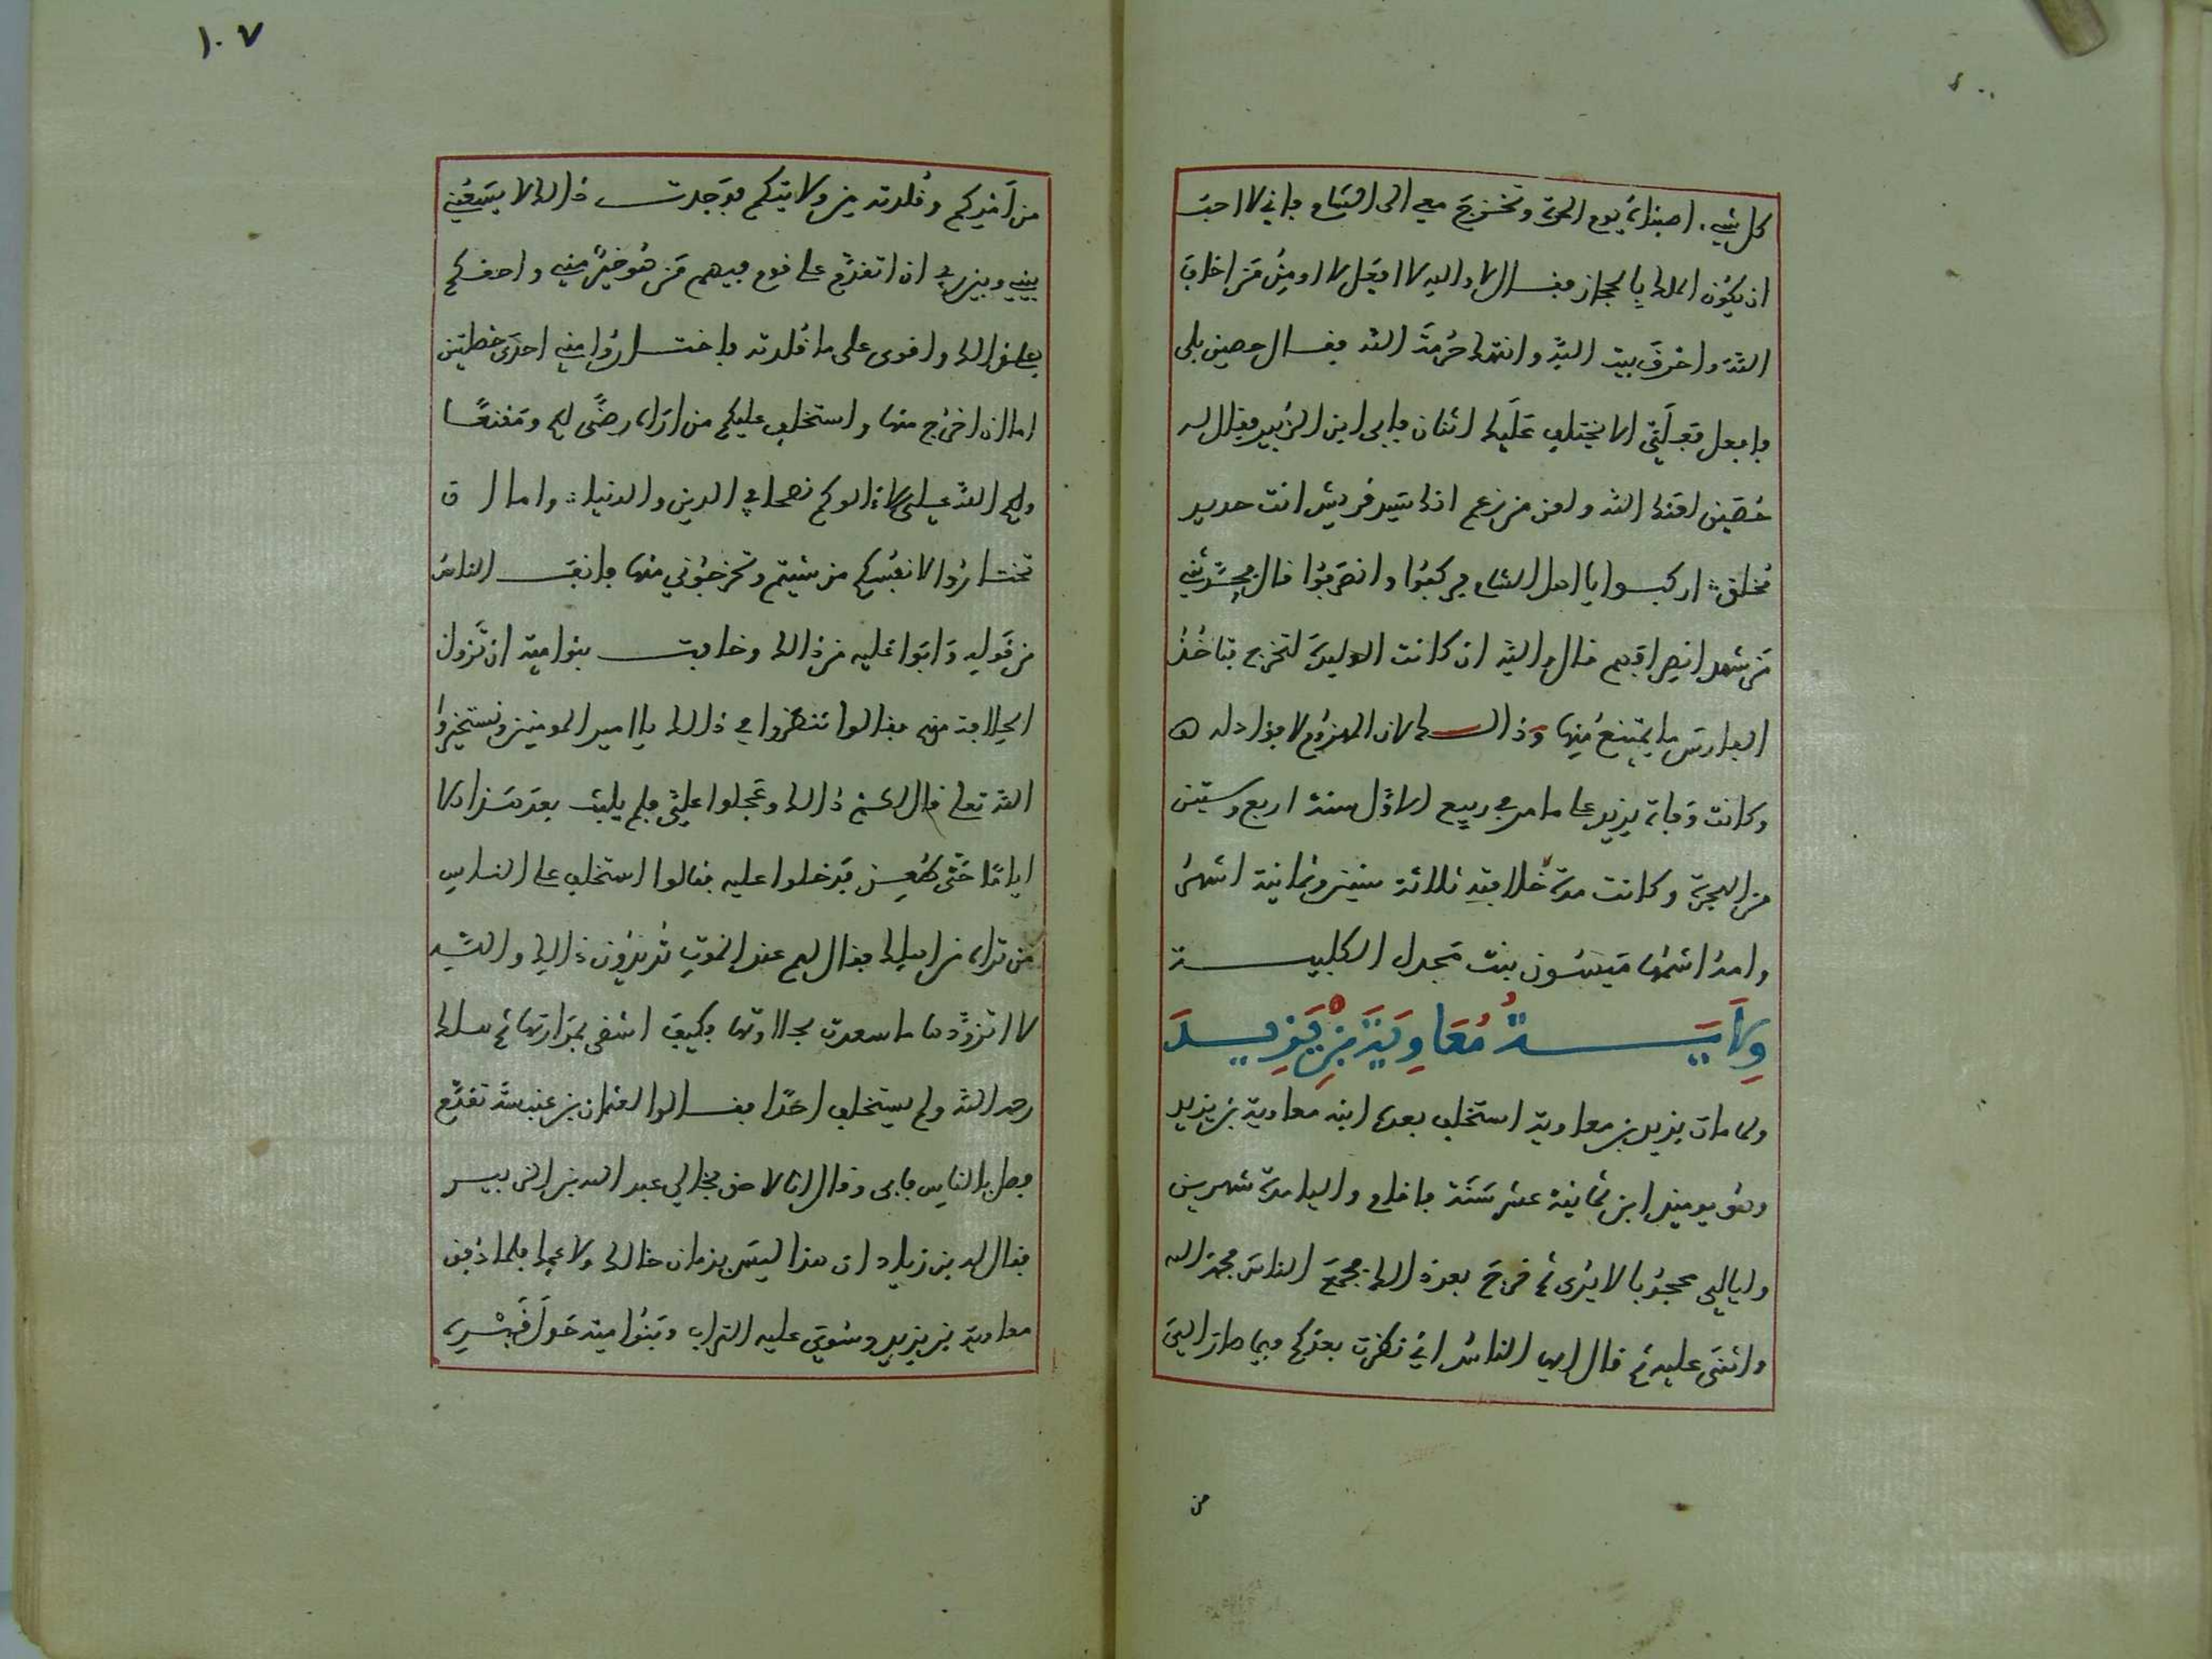 كل شيء اصبناه يوم الحرة وتخرج معي الى الشام فاني لا احب
ان يكون الملك بالحجاز فقال لا والله لا افعل لا اومن من اخاف
الله واحرق بيت الله وانتهك حرمة الله فقال حصين بلى
فافعل فعلى الا يختلف عليك اثنان فابى ابن الزبير فقال له
حصين لعنك الله ولعن من زعم انك سيد قريش انت حديد
اركبوا يا اهل الشام فركبوا وانصرفوا قال فحدثني
من شهد انصرافهم قال والله ان كانت الوليدة لتخرج فتاخذ
الفارس ما يمتنع منها وذالك لان المهزوم لا فؤاد له
وكانت وفاة يزيد على ما مر في ربيع الاول سنة اربع وستين
من الهجرة وكانت مدة خلافته ثلاثة سنين وثمانية اشهر
وامه اسمها ميسون بنت مجدل الكلبية
ولاية معاوية بن يزيد
ولما مات يزيد بن معاوية استخلف بعده ابنه معاوية بن يزيد
وهو يوميذ ابن ثمانية عشر سنة فاقام واليا مدة شهرين
وليالي محجوبا لا يرى ثم خرج بعد ذالك فجمع الناس فحمد الله
واثنى عليه ثم قال ايها الناس اني نظرت بعدكم فيما صار الي
من
١٠٧
من امركم وقلدته من ولايتكم فوجدت ذالك لا يسعني
بيني وبين ربي ان اتقدم على قوم فيهم من هو خير مني واحقكم
بذالك واقوى على ما قلدته فاختاروا مني احدى خصلتين
اما ان اخرج منها واستخلف عليكم من اراه رضى لكم ومقنعا
ولكم الله علي لا ءالوكم نصحا في الدين والدنيا واما ان
تختاروا لانفسكم من شيتم وتخرجوني منها فانف الناس
من قوله وابوا عليه من ذالك وخافت بنو امية ان تزول
الخلافة منهم فقالوا ننظروا في ذالك يا امير المومنين ونستخيروا
الله تعالى قال لكم ذالك وعجلوا علي فلم يلبث بعد هذا الا
اياما حتى طعن فدخلوا عليه فقالوا استخلف على الناس
من تراه من اهلك فقال لهم عند الموت تريدون ذالك والله
لا اتزودها ما سعدت بحلاوتها فكيف اشقى بمرارتها ثم هلك
رحمه الله ولم يستخلف احدا فقالوا لعثمان بن عنبسة تقدم
فصل بالناس فابى وقال انا لاحق بخالي عبد الله بن الزبير
فقال له بن زياد ان هذا ليس بزمان خالك ولا عمك فلما دفن
معاوية بن يزيد وسوي عليه التراب وبنو امية حول قبره